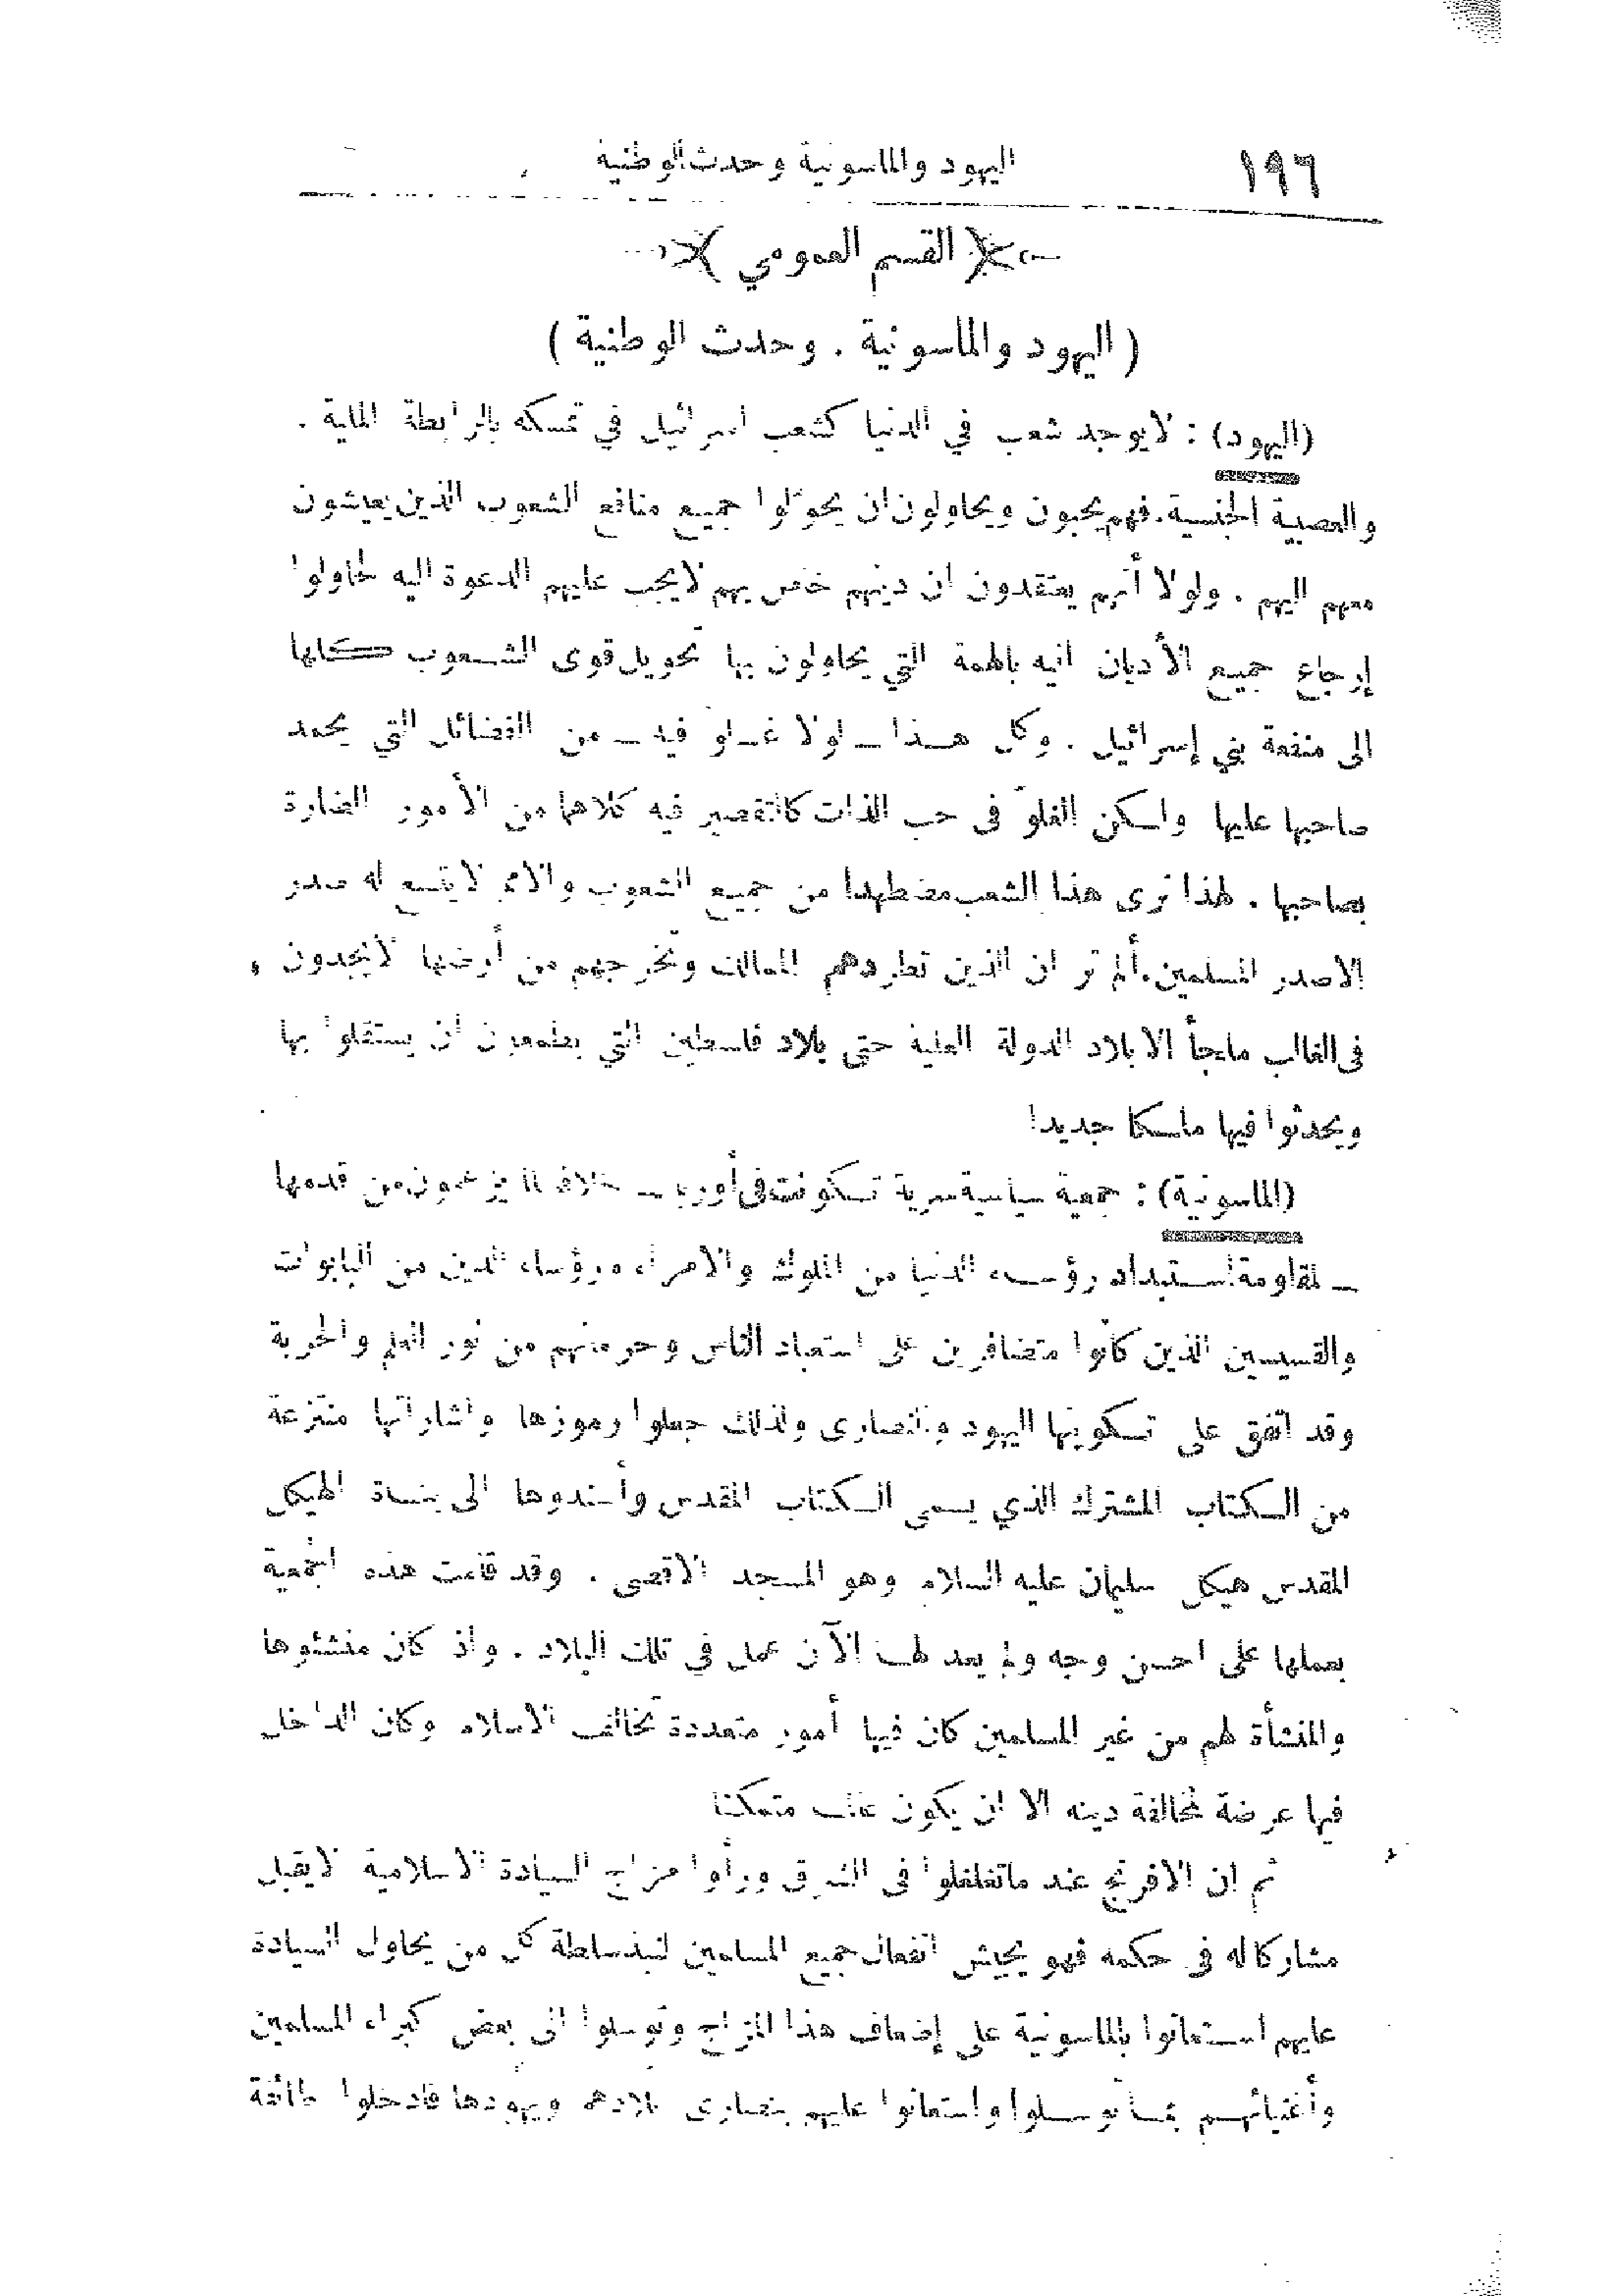 ١٩٦ اليهود والماسونية وحدث الوطنية
القسم العمومي
( اليهود والماسونية . وحدث الوطنية )
(اليهود) : لا يوجد شعب في الدنيا كشعب اسرائيل في تمسكه بالرابطة الملية .
والعصبية الجنسية . فهم يحبون ويحاولون ان يحوّلوا جميع منافع الشعوب الذين يعيشون
معهم اليهم . ولولا أنهم يعتقدون ان دينهم خاص بهم لا يجب عليهم الدعوة اليه لحاولوا
إرجاع جميع الأديان اليه بالهمة التي يحاولون بها تحويل قوى الشعوب كلها
الى منفعة بني إسرائيل . وكل هذا ــ لولا غلو فيه ــ من الفضائل التي يحمد
صاحبها عليها ولكن الغلوّ في حب الذات كالتقصير فيه كلاهما من الأمور الضارة
بصاحبها . لهذا نرى هذا الشعب مضطهدا من جميع الشعوب والامم لا يتسع له صدر
الا صدر المسلمين . ألم تر ان الذين تطردهم الممالك وتخرجهم من أرضها لا يجدون
في الغالب ملجأ الا بلاد الدولة العلية حتى بلاد فلسطين التي يطمعون أن يستقلوا بها
ويحدثوا فيها ملكا جديدا
(الماسونية) : جمعية سياسية سرية تكونت في أوربا ــ خلاف لما يزعمون من قدمها
ــ لمقاومة استبداد رؤساء الدنيا من الملوك والامراء ورؤساء الدين من البابوات
والقسيسين الذين كانوا متضافرين على استعباد الناس وحرمانهم من نور العلم والحرية
وقد اتفق على تكوينها اليهود والنصارى ولذلك جعلوا رموزها واشاراتها منتزعة
من الكتاب المشترك الذي يسمى الكتاب المقدس وأسندوها الى بناة الهيكل
المقدس هيكل سليمان عليه السلام وهو المسجد الاقصى . وقد قامت هذه الجمعية
بعملها على احسن وجه ولم يعد لها الآن عمل في تلك البلاد . واذ كان منشئوها
والمنشأة لهم من غير المسلمين كان فيها أمور متعددة تخالف الاسلام وكان الداخل
فيها عرضة لمخالفة دينه الا ان يكون متمكنا
ثم ان الافرنج عند ما تغلغلوا في الشرق ورأوا مزاج السيادة الاسلامية لا يقبل
مشاركا له في حكمه فهو يجيش انفعال جميع المسلمين لنبذ سلطة كل من يحاول السيادة
عليهم استعانوا بالماسونية على إضعاف هذا المزاج وتوسلوا الى بعض كبراء المسلمين
وأغنيائهم بما توسلوا واستعانوا عليهم بنصارى بلادهم ويهودها فادخلوا طائفة